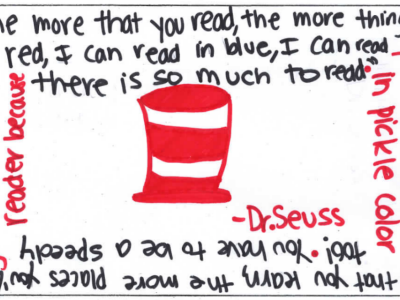 he more that you read, the more thing
red, I can read in blue, I can read
there is so much to read."
In pickle color
-Dr.Seuss
that you learn, the more places you'
too!. You have to be a speedy
reader because